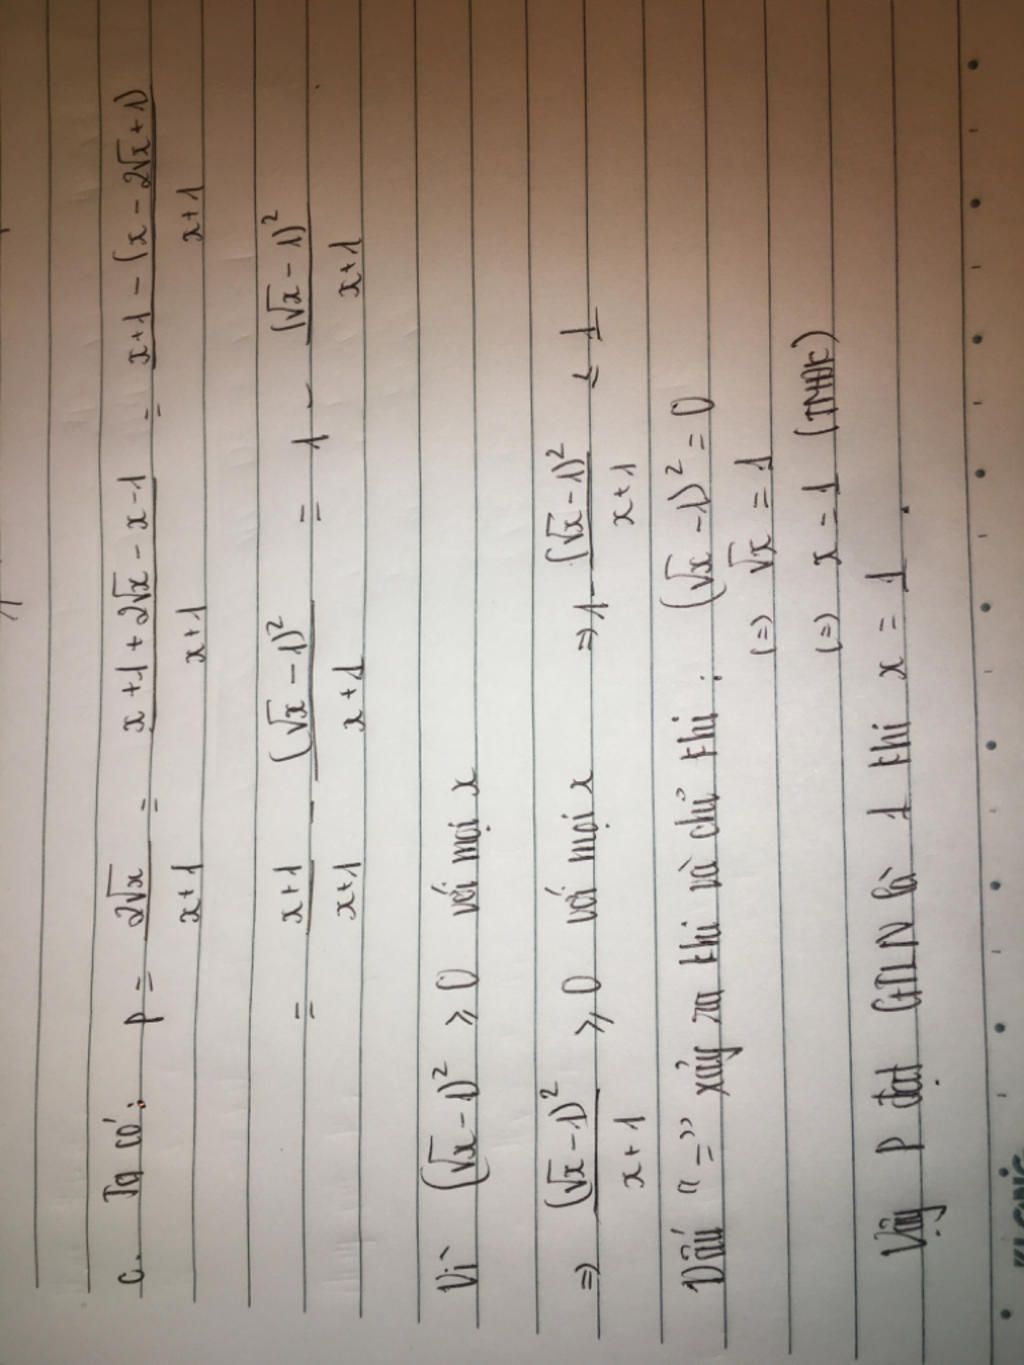 c. Ta có: P = 2√x / x+1 = x+1+2√x - x-1 / x+1 = x+1 - (x - 2√x + 1) / x+1
= x+1 / x+1 - (√x - 1)² / x+1 = 1 - (√x - 1)² / x+1
Vì (√x - 1)² ⩾ 0 với mọi x
=> (√x - 1)² / x+1 ⩾ 0 với mọi x => 1 - (√x - 1)² / x+1 ≤ 1
Dấu "=" xảy ra khi và chỉ khi: (√x - 1)² = 0
(=) √x = 1
(=) x = 1 (TMĐK)
Vậy P đạt GTLN là 1 khi x = 1.